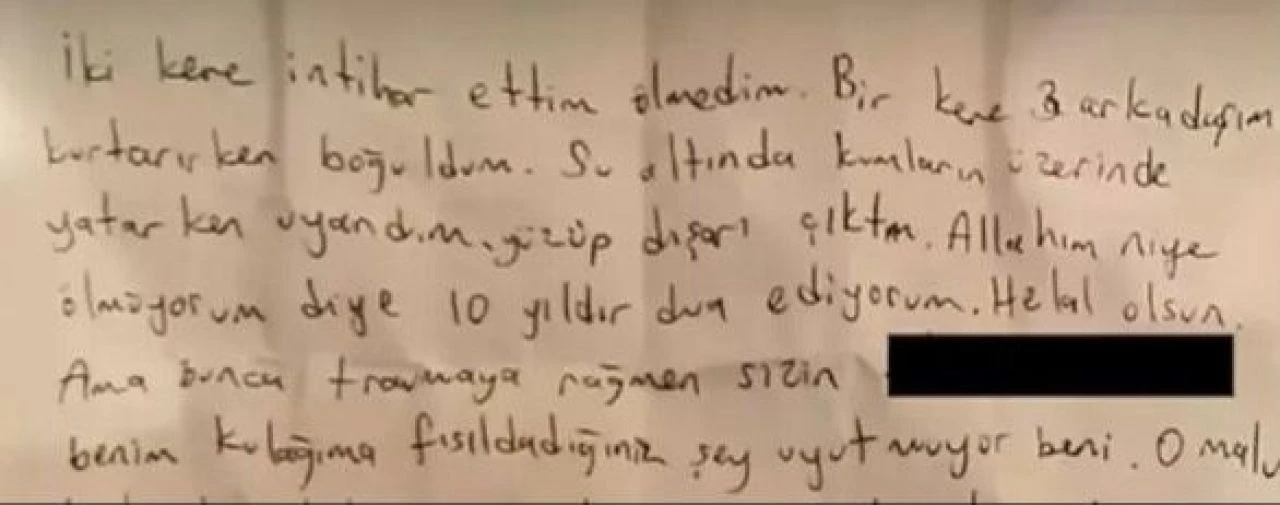 İki kere intihar ettim ölmedim. Bir kere 3 arkadaşım
kurtarırken boğuldum. Su altında kumların üzerinde
yatarken uyandım, yüzüp dışarı çıktım. Allahım niye
ölmüyorum diye 10 yıldır dua ediyorum. Helal olsun.
Ama bunca travmaya rağmen sizin
benim kulağıma fısıldadığınız şey uyutmuyor beni. O